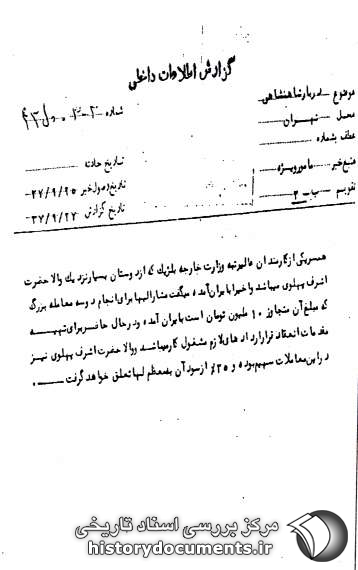 گزارش اطلاعات داخلی
موضوع – دربار شاهنشاهی
محل – تهران
عطف بشماره
منبع خبر – مامور ویژه
تقویم – ب – ۲
شماره
تاریخ حادثه
تاریخ وصول خبر ۳۷/۹/۲۵–
تاریخ گزارش ۳۷/۹/۲۷–
همسر یکی از کارمندان عالیرتبه وزارت خارجه بلژیک که از دوستان بسیار نزدیک والاحضرت
اشرف پهلوی میباشد و اخیرا بایران آمده میگفت مشارالیها برای انجام دو سه معامله بزرگ
که مبلغ آن متجاوز ۱۰ ملیون تومان است بایران آمده و در حال حاضر برای تهیه
مقدمات انعقاد قراردادهای لازم مشغول کار میباشد و والاحضرت اشرف پهلوی نیز
در این معاملات سهیم بوده و ۲۵٪ از سود آن بمعظم لها تعلق خواهد گرفت
مرکز بررسی اسناد تاریخی
historydocuments.ir